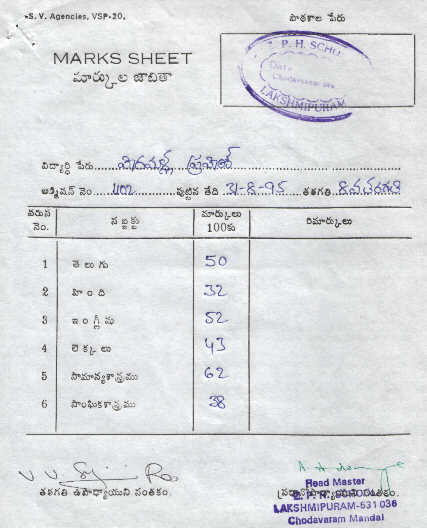 S. V. Agencies, VSP-20.
పాఠశాల పేరు
MARKS SHEET
మార్కుల జాబితా
Z. P. H. SCHO
Date
Chodavaram
LAKSHMIPURAM
విద్యార్థి పేరు
అడ్మిషన్ నెం పుట్టిన తేది 31-8-95 తరగతి
వరుస నెం. సబ్జక్టు మార్కులు 100కు రిమార్కులు
1 తెలుగు 50
2 హింది 32
3 ఇంగ్లీషు 52
4 లెక్కలు 43
5 సామాన్యశాస్త్రము 62
6 సాంఘికశాస్త్రము 38
తరగతి ఉపాధ్యాయుని సంతకం. ప్రధానోపాధ్యాయుని సంతకం.
Head Master
Z. P. H. SCHOOL
LAKSHMIPURAM-531 036
Chodavaram Mandal